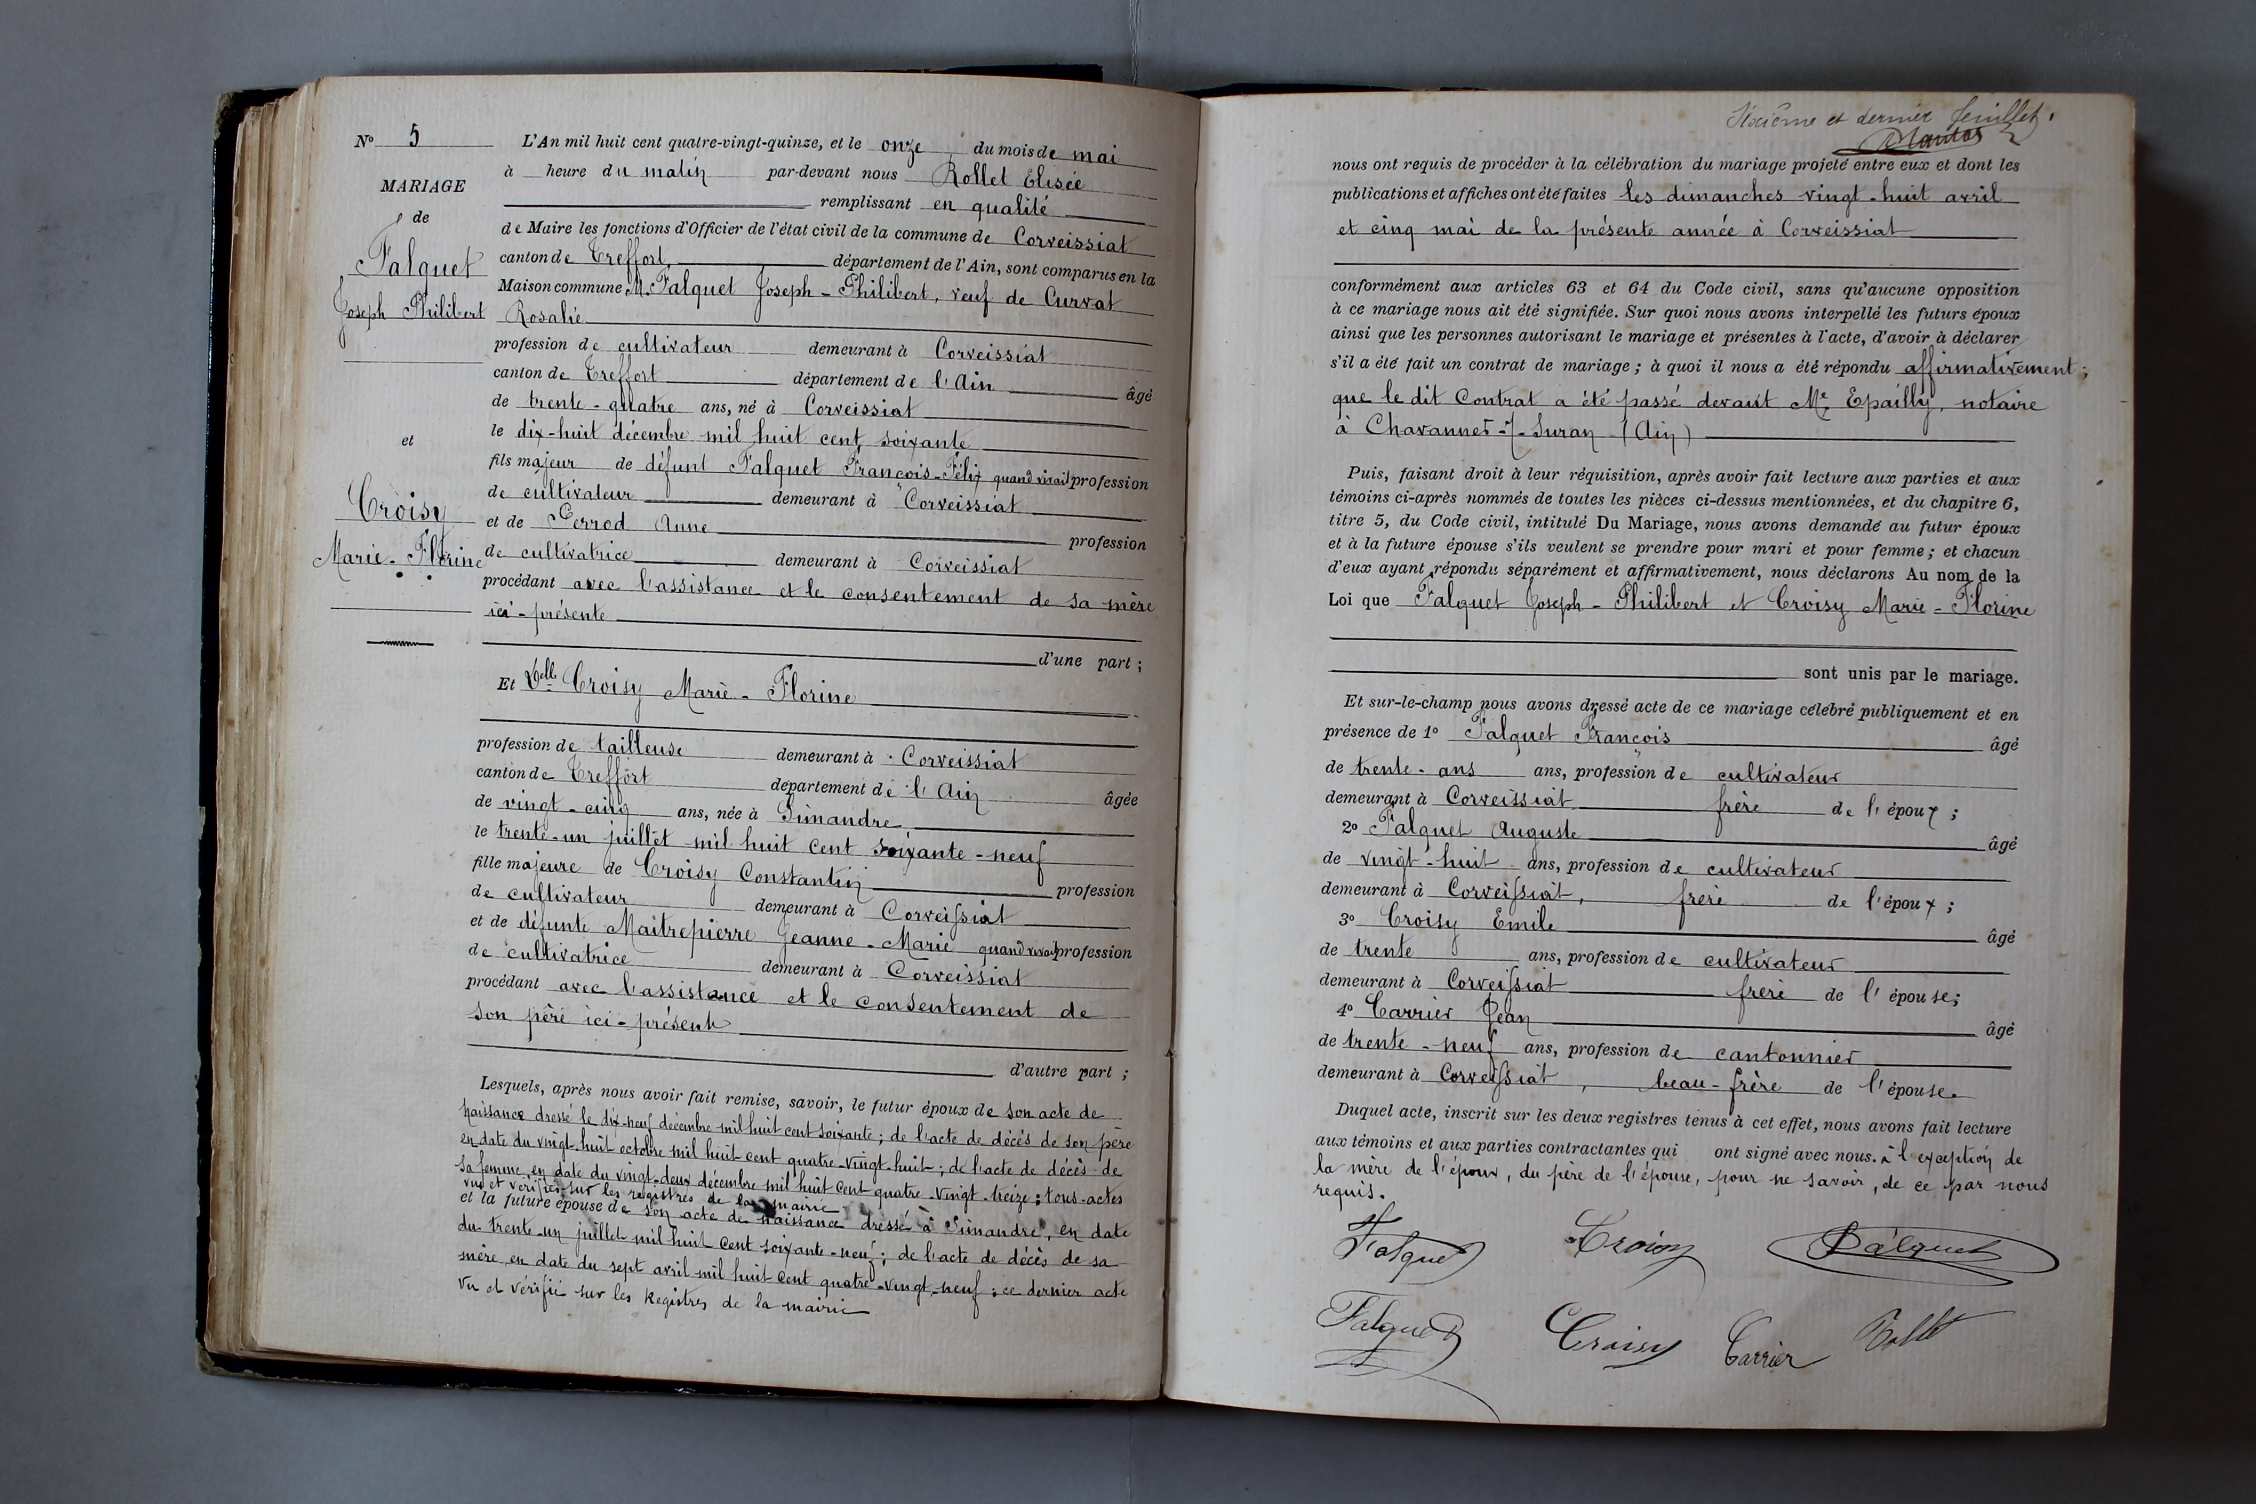 N° 5
MARIAGE
de
Falquet
Joseph Philibert
et
Croisy
Marie-Florine
L'An mil huit cent quatre-vingt-quinze, et le onze du mois de mai
à heure du matin par-devant nous Rollet Elisée
remplissant en qualité
de Maire les fonctions d'Officier de l'état civil de la commune de Corveissiat
canton de Treffort, département de l'Ain, sont comparus en la
Maison commune M. Falquet Joseph-Philibert, veuf de Curvat
Rosalie
profession de cultivateur demeurant à Corveissiat
canton de Treffort département de l'Ain âgé
de trente-quatre ans, né à Corveissiat
le dix-huit décembre mil huit cent soixante
fils majeur de défunt Falquet François-Félix quand vivait profession
de cultivateur demeurant à Corveissiat
et de Perrod Anne profession
de cultivatrice demeurant à Corveissiat
procédant avec l'assistance et le consentement de sa mère
ici-présente
d'une part ;
Et Delle Croisy Marie-Florine
profession de tailleuse demeurant à Corveissiat
canton de Treffort département de l'Ain âgée
de vingt-cinq ans, née à Simandre
le trente-un juillet mil huit cent soixante-neuf
fille majeure de Croisy Constantin profession
de cultivateur demeurant à Corveissiat
et de défunte Maitrepierre Jeanne-Marie quand vivait profession
de cultivatrice demeurant à Corveissiat
procédant avec l'assistance et le consentement de
son père ici-présent
d'autre part ;
Lesquels, après nous avoir fait remise, savoir, le futur époux de son acte de
naissance dressé le dix-neuf décembre mil huit cent soixante ; de l'acte de décès de son père
en date du vingt-huit octobre mil huit cent quatre-vingt-huit ; de l'acte de décès de
sa femme, en date du vingt-deux décembre mil huit cent quatre-vingt-treize ; tous actes
vus et vérifiés sur les registres de la mairie
et la future épouse de son acte de naissance dressé à Simandre, en date
du trente-un juillet mil huit cent soixante-neuf ; de l'acte de décès de sa
mère en date du sept avril mil huit cent quatre-vingt-neuf ; ce dernier acte
vu et vérifié sur les Registres de la mairie
Sixième et dernier feuillet.
nous ont requis de procéder à la célébration du mariage projeté entre eux et dont les
publications et affiches ont été faites les dimanches vingt-huit avril
et cinq mai de la présente année à Corveissiat
conformément aux articles 63 et 64 du Code civil, sans qu'aucune opposition
à ce mariage nous ait été signifiée. Sur quoi nous avons interpellé les futurs époux
ainsi que les personnes autorisant le mariage et présentes à l'acte, d'avoir à déclarer
s'il a été fait un contrat de mariage ; à quoi il nous a été répondu affirmativement ;
que le dit Contrat a été passé devant Me Epailly, notaire
à Chavannes-s/-Suran (Ain)
Puis, faisant droit à leur réquisition, après avoir fait lecture aux parties et aux
témoins ci-après nommés de toutes les pièces ci-dessus mentionnées, et du chapitre 6,
titre 5, du Code civil, intitulé Du Mariage, nous avons demandé au futur époux
et à la future épouse s'ils veulent se prendre pour mari et pour femme ; et chacun
d'eux ayant répondu séparément et affirmativement, nous déclarons Au nom de la
Loi que Falquet Joseph-Philibert et Croisy Marie-Florine
sont unis par le mariage.
Et sur-le-champ nous avons dressé acte de ce mariage célébré publiquement et en
présence de 1° Falquet François âgé
de trente-ans ans, profession de cultivateur
demeurant à Corveissiat frère de l'époux ;
2° Falquet Auguste âgé
de vingt-huit ans, profession de cultivateur
demeurant à Corveissiat, frère de l'époux ;
3° Croisy Emile âgé
de trente ans, profession de cultivateur
demeurant à Corveissiat frère de l'épouse ;
4° Carrier Jean âgé
de trente-neuf ans, profession de cantonnier
demeurant à Corveissiat, beau-frère de l'épouse.
Duquel acte, inscrit sur les deux registres tenus à cet effet, nous avons fait lecture
aux témoins et aux parties contractantes qui ont signé avec nous. à l'exception de
la mère de l'époux, du père de l'épouse, pour ne savoir, de ce par nous
requis.
Falquet Croisy Falquet
Falquet Croisy Carrier Rollet